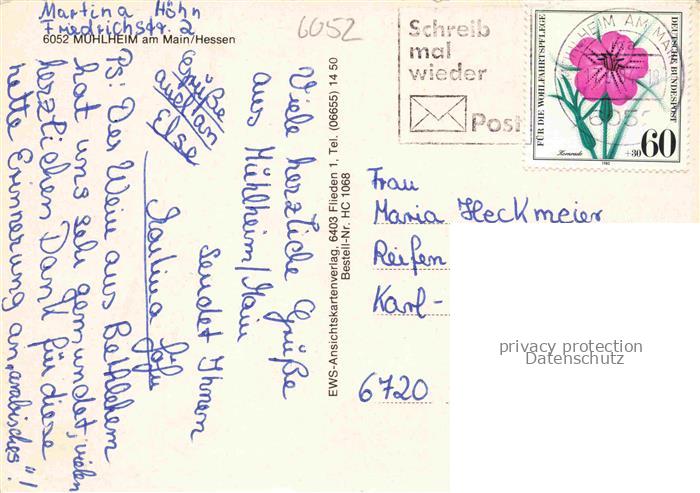 Martina Höhn
Friedrichstr. 2
6052 MÜHLHEIM am Main/Hessen
6052
Viele herzliche Grüße
aus Mühlheim/Main
sendet Ihnen
Martina Höhn
Grüße
auch an
Else
Ps: Der Wein aus Bethlehem
hat uns sehr gemundet, vielen
herzlichen Dank für diese
nette Erinnerung an „arabisches"!
EWS-Ansichtskartenverlag, 6403 Flieden 1, Tel. (06655) 14 50
Bestell-Nr. HC 1068
Schreib
mal
wieder
Post
MÜHLHEIM AM MAIN
6052
FÜR DIE WOHLFAHRTSPFLEGE
DEUTSCHE BUNDESPOST
Kornrade
+30 60
1980
Frau
Maria Heckmeier
Reifen
Karl-
6720
privacy protection
Datenschutz